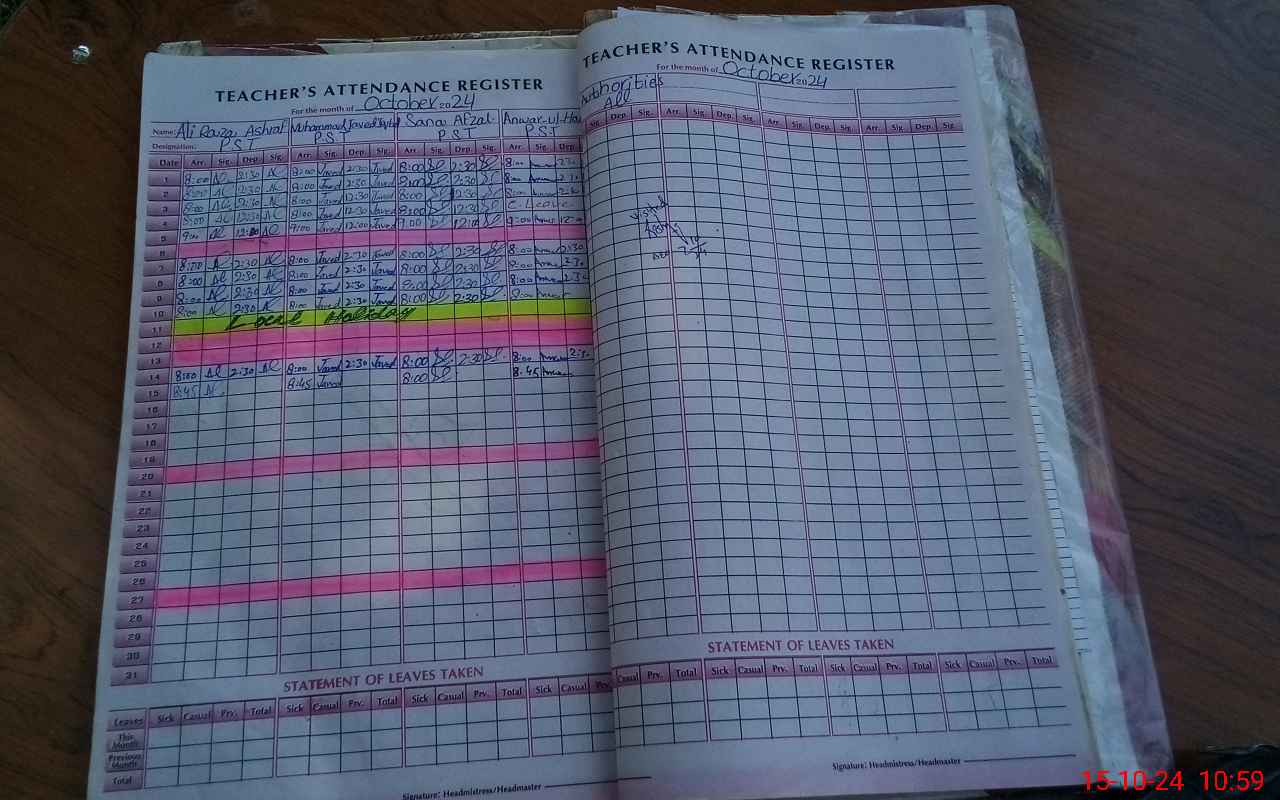 TEACHER'S ATTENDANCE REGISTER
For the month of October 2024
Name: Ali Raza Ashraf Muhammad Javed Iqbal Sana Afzal Anwar-ul-Ha
Designation: P.S.T P.S.T P.S.T P.S.T
Date Arr. Sig. Dep. Sig. Arr. Sig. Dep. Sig. Arr. Sig. Dep. Sig. Arr. Sig. Dep.
1 8:00 2:30 8:00 Javed 2:30 Javed 8:00 2:30 8:00
2 8:00 2:30 8:00 Javed 2:30 Javed 8:00 2:30 8:00
3 8:00 2:30 8:00 Javed 12:30 Javed 8:00 2:30 8:00
4 8:00 12:30 8:00 Javed 12:30 Javed 8:00 12:30 C. Leave
5 9:00 12:00 9:00 Javed 12:00 Javed 9:00 12:00 9:00
6
7 8:00 2:30 8:00 Javed 2:30 Javed 8:00 2:30 8:00 2:30
8 8:00 2:30 8:00 Javed 2:30 Javed 8:00 2:30 8:00 2:30
9 8:00 2:30 8:00 Javed 2:30 Javed 8:00 2:30 8:00 2:30
10 8:00 2:30 8:00 Javed 2:30 Javed 8:00 2:30 8:00
11 Local Holiday
12
13
14 8:00 2:30 8:00 Javed 2:30 Javed 8:00 2:30 8:00 2:30
15 8:45 8:45 Javed 8:00 8:45
16
17
18
19
20
21
22
23
24
25
26
27
28
29
30
31
STATEMENT OF LEAVES TAKEN
Leaves Sick Casual Prv. Total Sick Casual Prv. Total Sick Casual Prv. Total Sick Casual Prv.
This Month
Previous Month
Total
Signature: Headmistress/Headmaster
TEACHER'S ATTENDANCE REGISTER
For the month of October 2024
Authorities
All
Sig. Dep. Sig. Arr. Sig. Dep. Sig. Arr. Sig. Dep. Sig. Arr. Sig. Dep. Sig.
Visited
STATEMENT OF LEAVES TAKEN
Casual Prv. Total Sick Casual Prv. Total Sick Casual Prv. Total Sick Casual Prv. Total
Signature: Headmistress/Headmaster
15-10-24 10:59